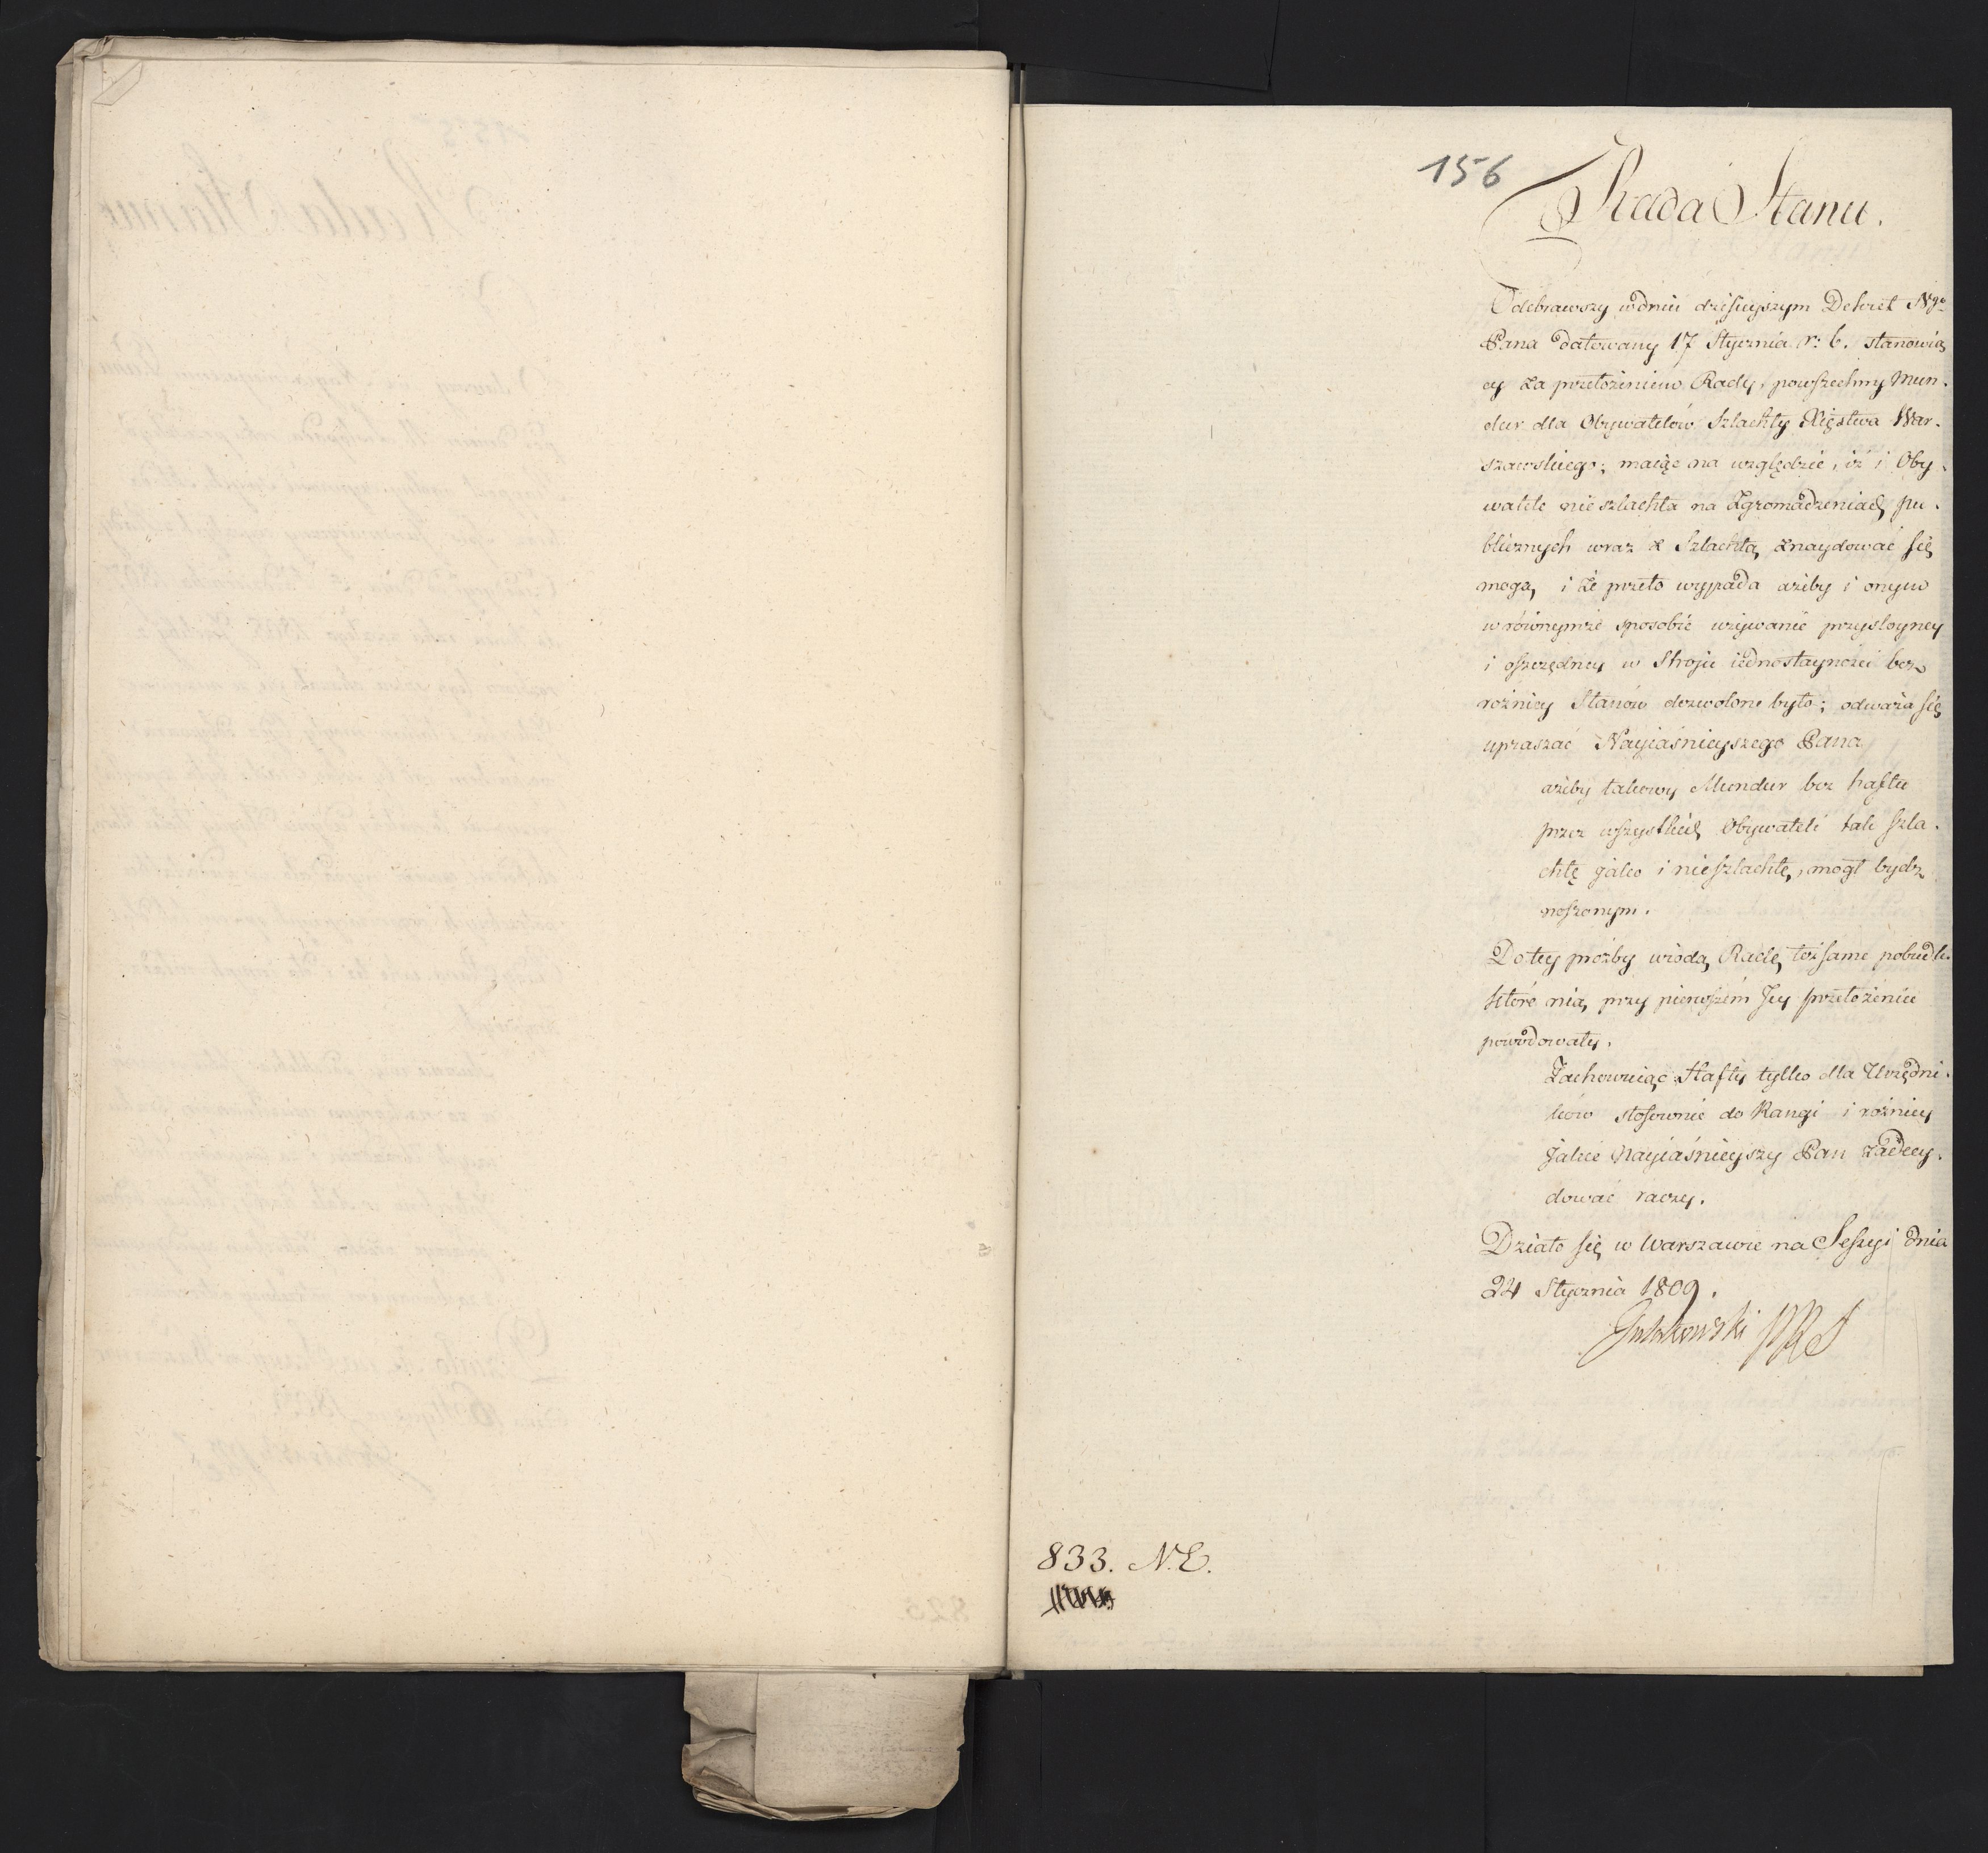 156
Rada Stanu.
Odebrawszy w dniu dzisieyszym Dekret Nygo
Pana datowany 17 Stycznia r: b. stanowią
cy za przełożeniem Rady, powszechny Mun.
dur dla Obywatelów Szlachty Xięstwa War.
szawskiego; maiąc na względzie, iż i Oby.
watele nieszlachta na Zgromadzeniach pu.
blicznych wraz z Szlachtą znaydować się
mogą, i że przeto wypada ażeby i onym
w równymże sposobie używanie przystoyney
i oszczędney w Stroju iednostayności bez
różnicy Stanów dozwolone było; odważa się
upraszać Nayiaśnieyszego Pana
ażeby takowy Mundur bez haftu
przez wszystkich Obywateli tak szla.
chtę jako i nieszlachtę, mógł bydź
noszonym.
Do tey proźby wiodą Radę też same pobudki
które nią przy pierwszém Jey przełożeniu
powodowały.
Zachowuiąc Hafty tylko dla Urzędni.
ków stosownie do Rangi i różnicy
jakie Nayiaśnieyszy Pan zadecy.
dować raczy.
Działo się w Warszawie na Sessyi dnia
24 Stycznia 1809.
Gutakowski PRS
833. N.E.